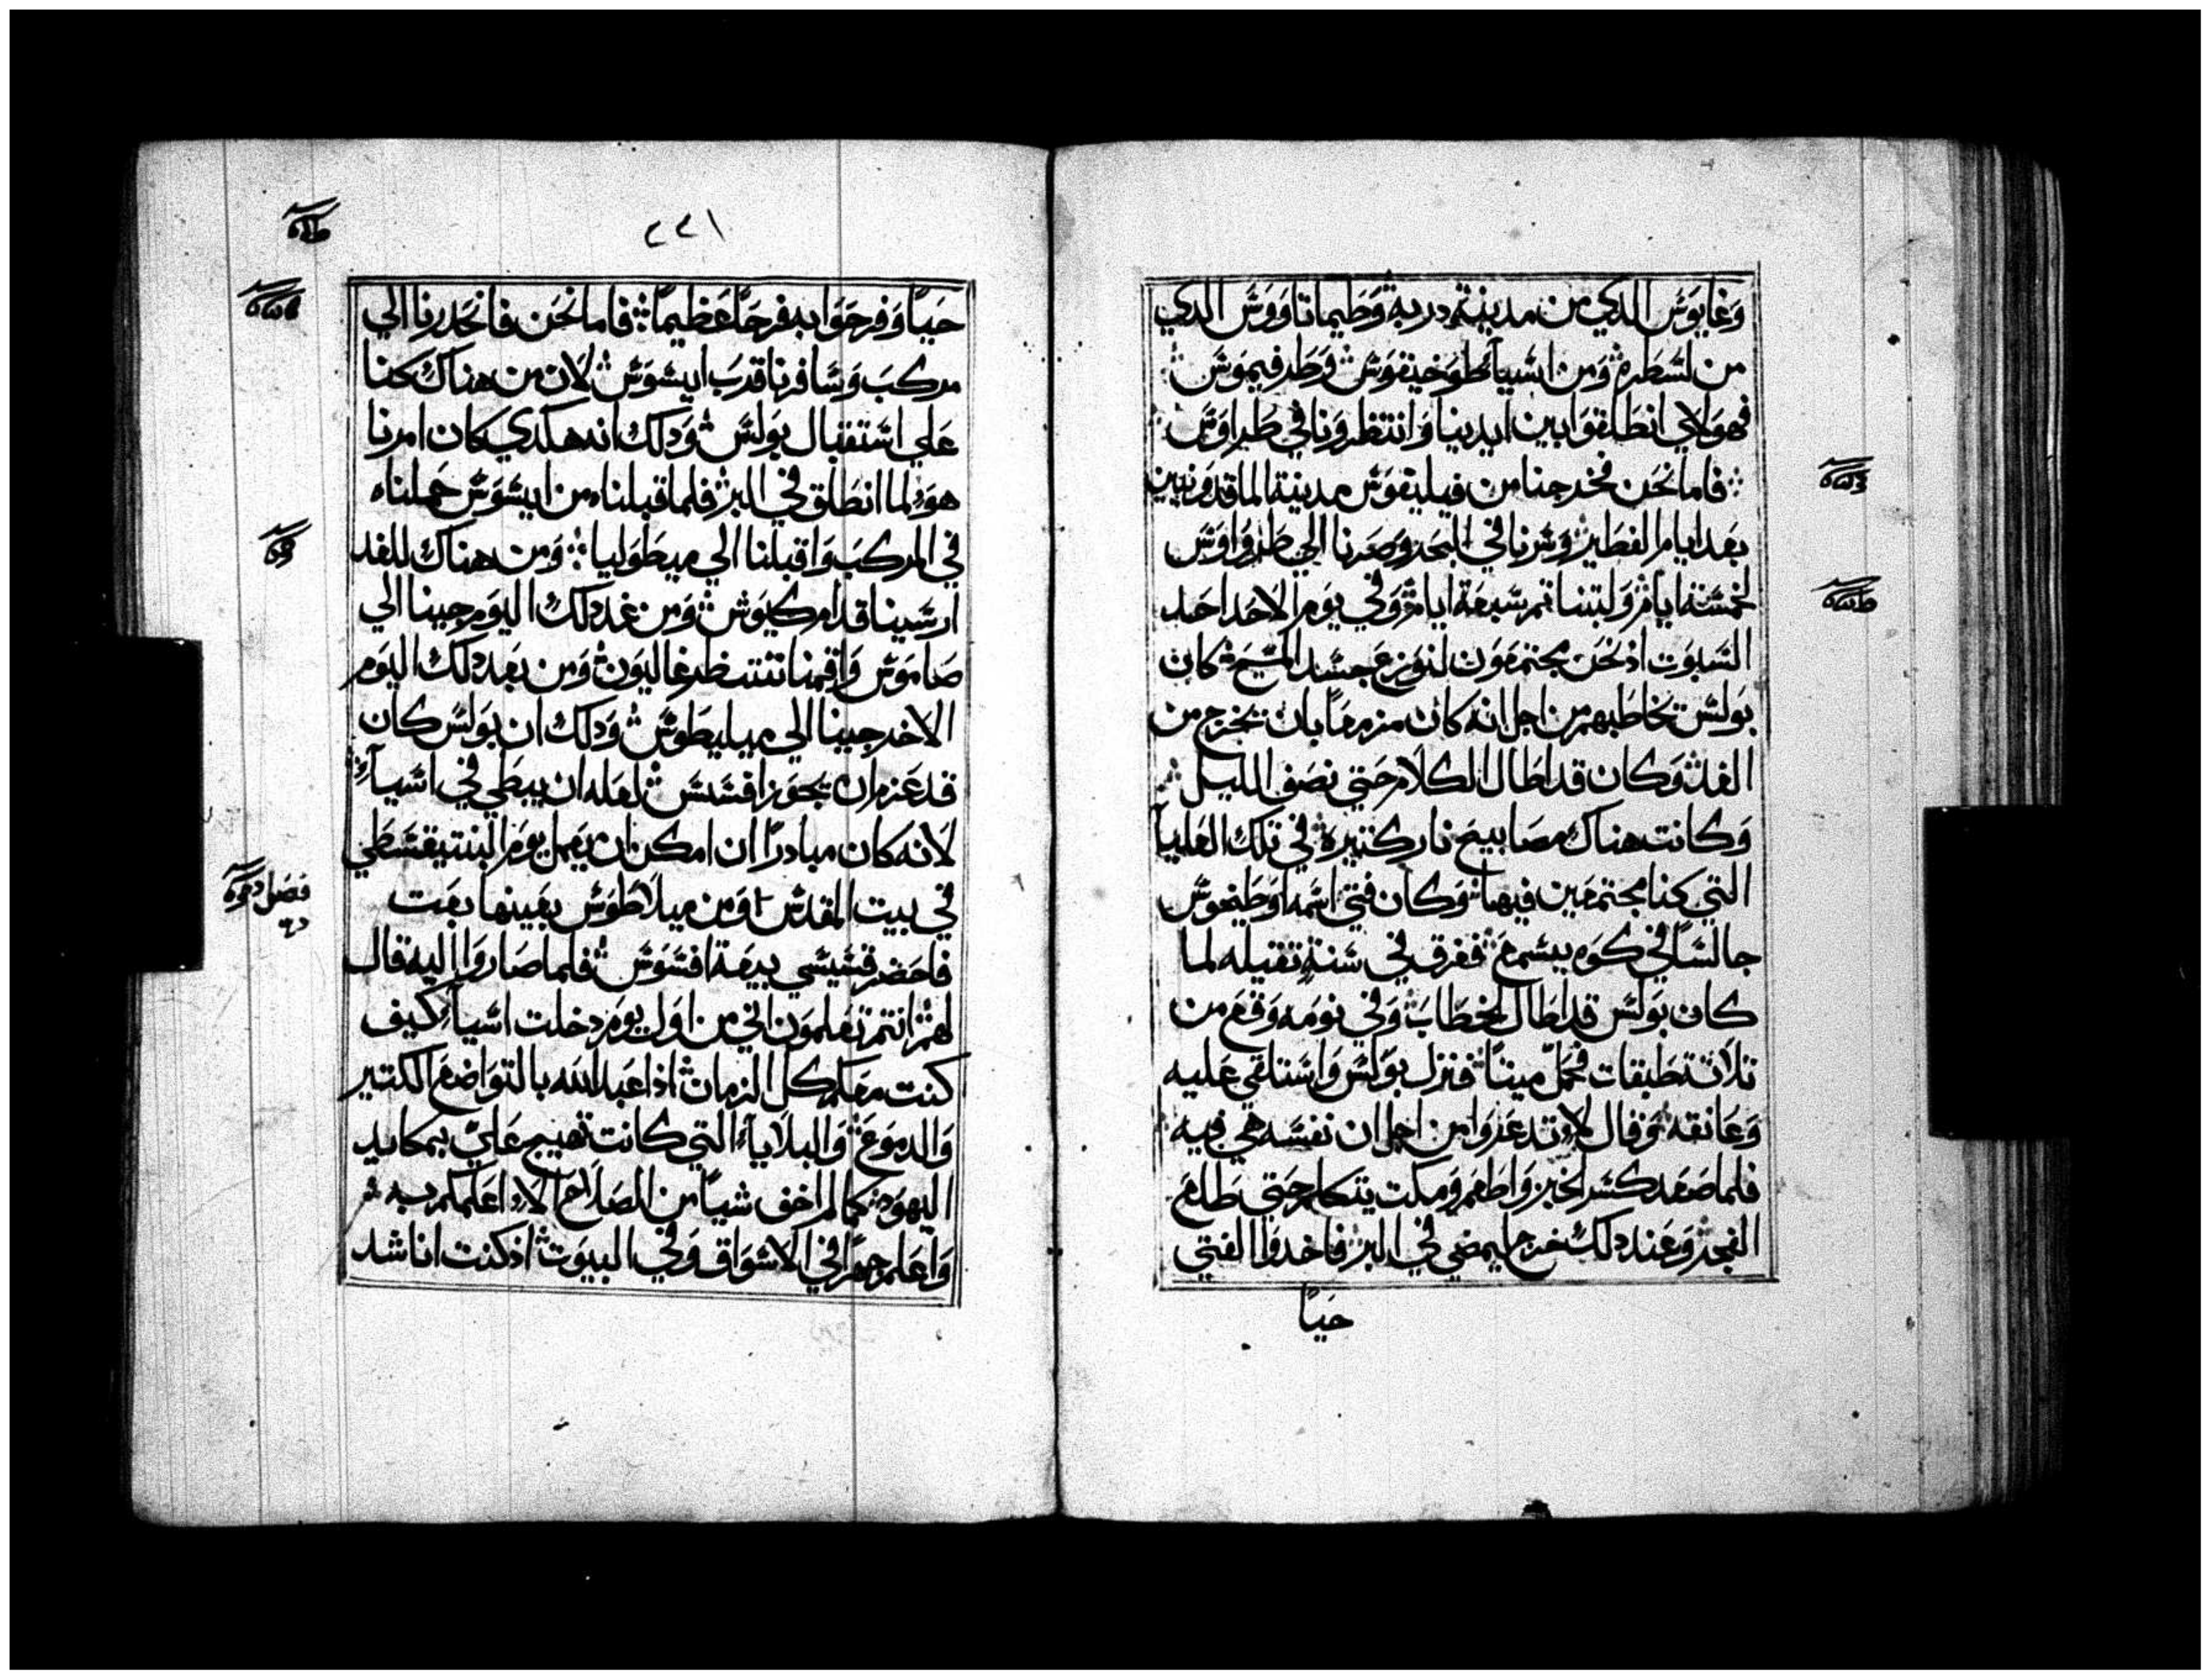 وغايوس الدي من مدينة دربة وطيماتاووس الدي
من لسطرة ومن اسيا طوخيقوس وطرفيموس
فهولاي انطلقوا بين ايدينا وانتظرونا في طراوس
فاما نحن فخرجنا من فيليفوس مدينة الماقدونيين
بعد ايام الفطير وسرنا في البحر وصرنا الي طرواوس
لخمسة ايام ولبتنا تم سبعة ايام وفي يوم الاحد احد
السبوت اد نحن مجتمعون لنوزع جسد المسيح كان
بولس يخاطبهم من اجل انه كان مزمعا بان يخرج من
الغد وكان قد اطال الكلام حتي نصف الليل
وكانت هناك مصابيح نار كتيرة في تلك العليا
التي كنا مجتمعين فيها وكان فتي اسمه اوطيخوس
جالسا في كوه يسمع فغرق في سنة تقيله لما
كان بولس قد اطال الخطاب وفي نومه وقع من
تلاتة طبقات فحمل ميتا فنزل بولس واستلقي عليه
وعانقه وقال لا تدعروا من اجل ان نفسه هي فيه
فلما صعد كسر الخبز واطعم ومكت يتكلم حتي طلع
الفجر وعند دلك خرج ليمضي في البر فاخدوا الفتي
حيا
٢٢١
حيا وفرحوا به فرحا عظيما فاما نحن فانحدرنا الي
مركب وسافرنا قدب ايسوس لان من هناك كنا
علي استقبال بولس ودلك انه هكدي كان امرنا
هو لما انطلق في البر فلما قبلناه من ايسوس حملناه
في المركب واقبلنا الي ميطوليا ومن هناك للغد
ارسينا قدام كيوس ومن غد دلك اليوم جينا الي
صاموس واقمنا ننتظر غاليون ومن بعد دلك اليوم
الاخر جينا الي ميليطوس ودلك ان بولس كان
قد عزم ان يجوز افسس لعله ان يبطي في اسيا
لانه كان مبادرا ان امكن ان يعمل يوم البنتيقسطي
في بيت المقدس ومن ميلاطوس بعينها بعت
فاحضر قسيسي بيعة افسوس فلما صاروا اليه قال
لهم انتم تعلمون اني من اول يوم دخلت اسيا كيف
كنت معكم كل الزمان اد اعبد الله بالتواضع الكتير
والدموع والبلايا التي كانت تهيج علي بمكايد
اليهود كما لم اخف شيا من الصلاح الا اعلمكم به
واعلم جهرا في الاسواق وفي البيوت اد كنت اناشد
فصل